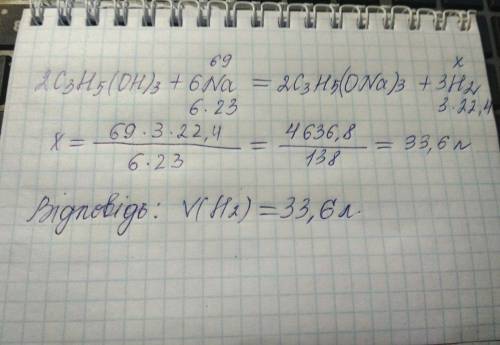 69 x
2C₃H₅(OH)₃ + 6Na = 2C₃H₅(ONa)₃ + 3H₂
6·23 3·22,4
x = 69·3·22,4 / 6·23 = 4636,8 / 138 = 33,6 л
Відповідь: V(H₂) = 33,6 л.